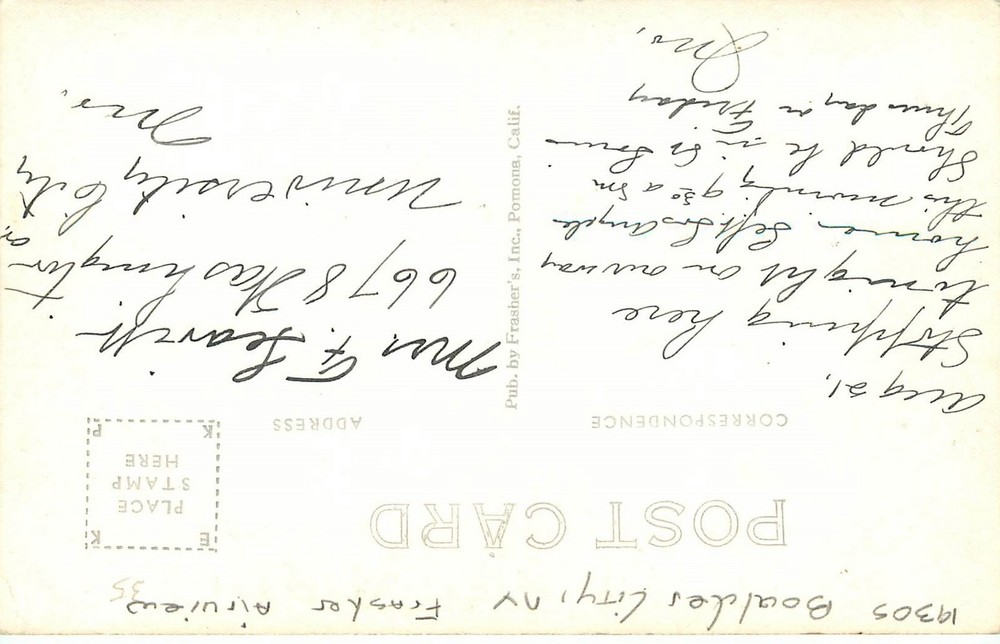 1930s Boulder City, NV Frasher Airview
35
POST CARD
CORRESPONDENCE
ADDRESS
PLACE
STAMP
HERE
E K
K P
Aug 21,
Stopping here
tonight on our way
home. Left Los Angeles
this morning 9 30 a m
Should be in St Louis
Thursday or Friday
Pub. by Frasher's, Inc., Pomona, Calif.
Mrs. F.
6678 Washington
University City
Mo.